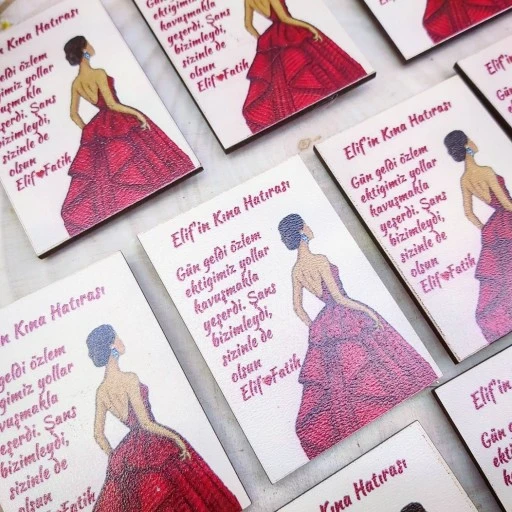 n Kına Hatırası
geldi özlem
ğimiz yollar
uşmakla
şerdi. Şans
bizimleydi,
sizinle de
olsun
Elif♥Fatih
ektiğimiz yollar
kavuşmakla
yeşerdi. Şans
bizimleydi,
sizinle de
olsun
Elif♥Fatih
Elif'in Kına Hatırası
Gün geldi özlem
ektiğimiz yollar
kavuşmakla
yeşerdi. Şans
bizimleydi,
sizinle de
olsun
Elif♥Fatih
Elif'in Kına Hatırası
Gün geldi özlem
ektiğimiz yollar
kavuşmakla
yeşerdi. Şans
bizimleydi,
sizinle de
olsun
Elif♥Fatih
n Kına Hatırası
geldi özlem
ğimiz yollar
vuşmakla
şerdi. Şans
bizimleydi,
sizinle de
olsun
Fatih
Kına Hatırası
Elif'in
Gün